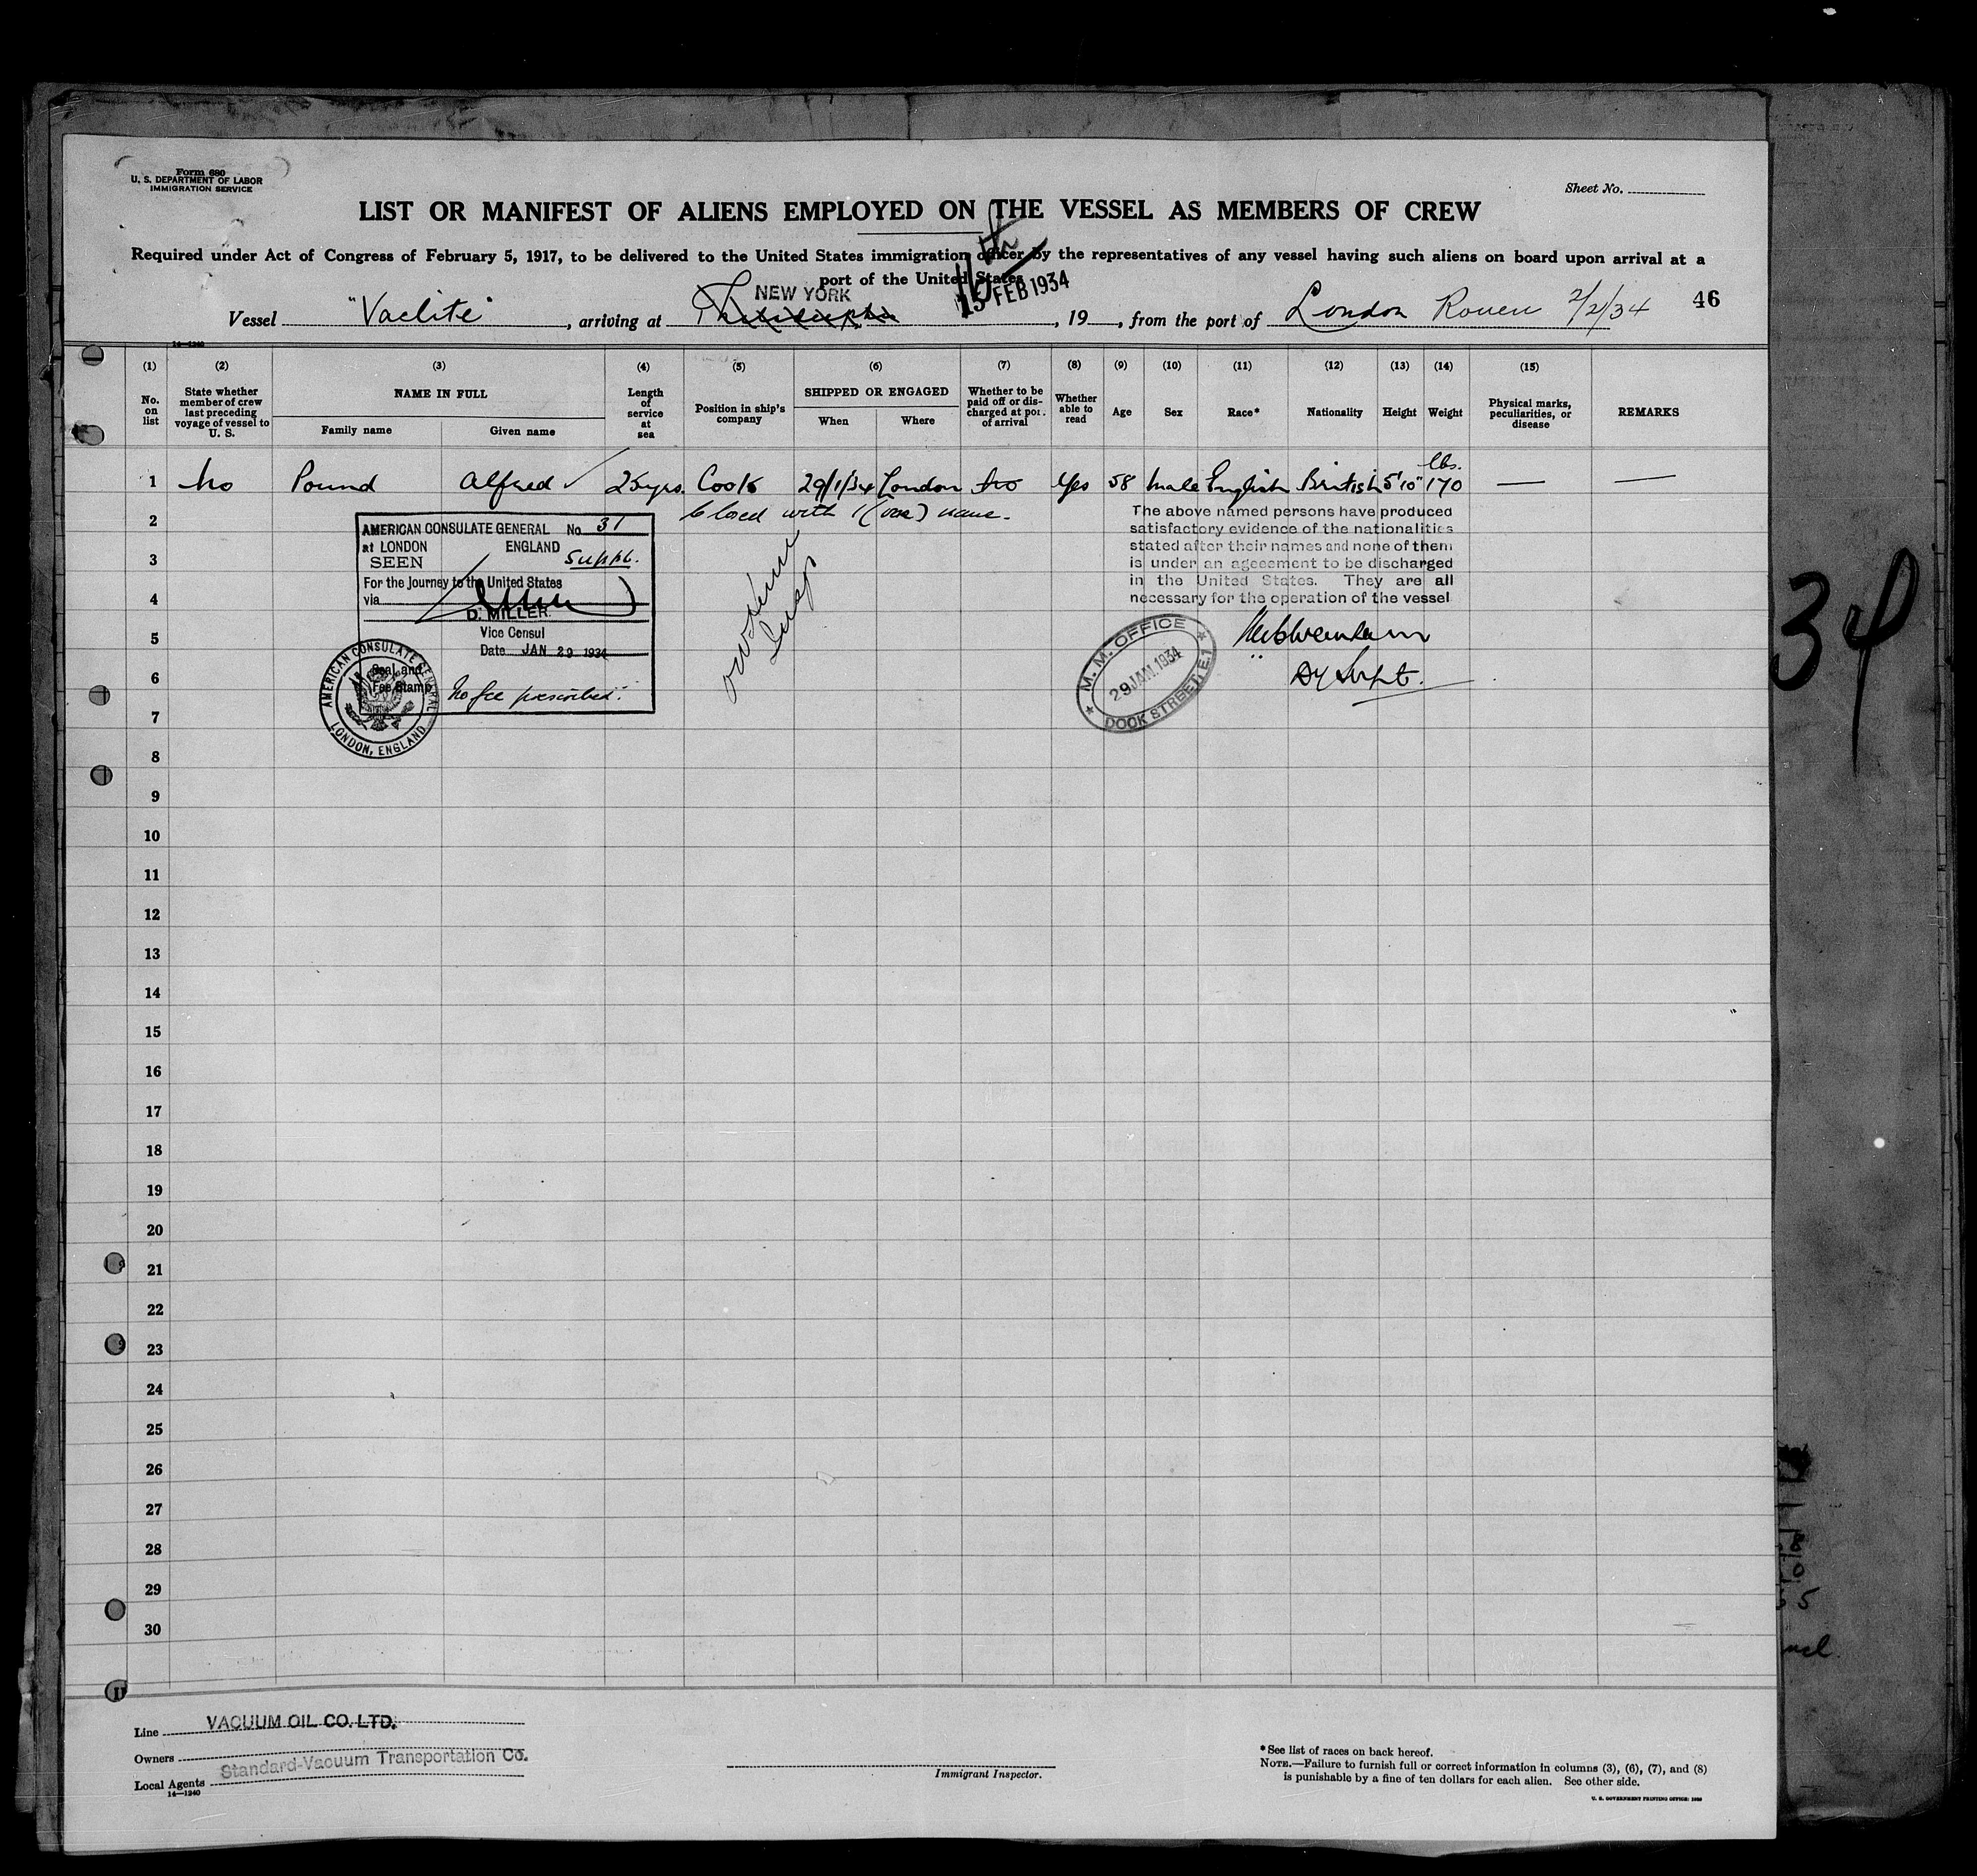 Form 680
U. S. DEPARTMENT OF LABOR
IMMIGRATION SERVICE
Sheet No.
LIST OR MANIFEST OF ALIENS EMPLOYED ON THE VESSEL AS MEMBERS OF CREW
Required under Act of Congress of February 5, 1917, to be delivered to the United States immigration officer by the representatives of any vessel having such aliens on board upon arrival at a
port of the United States
NEW YORK 15 FEB 1934
Vessel "Vaclite", arriving at , 19 , from the port of London Rouen 2/2/34 46
14—1240
(1) (2) (3) (4) (5) (6) (7) (8) (9) (10) (11) (12) (13) (14) (15)
No. on list
State whether member of crew last preceding voyage of vessel to U. S.
NAME IN FULL
Family name Given name
Length of service at sea
Position in ship's company
SHIPPED OR ENGAGED
When Where
Whether to be paid off or discharged at port of arrival
Whether able to read
Age Sex Race* Nationality Height Weight
Physical marks, peculiarities, or disease
REMARKS
lbs.
1 No Pound Alfred 25yrs. Cook 29/1/34 London No Yes 58 Male English British 5'10" 170 — —
2 Closed with 1 (one) name.
AMERICAN CONSULATE GENERAL No 31
at LONDON ENGLAND
SEEN Suppl.
For the Journey to the United States
via
D. MILLER.
Vice Consul
Date JAN 29 1934
Seal and
Fee Stamp
No fee prescribed.
AMERICAN CONSULATE GENERAL
LONDON, ENGLAND
The above named persons have produced
satisfactory evidence of the nationalities
stated after their names and none of them
is under an agreement to be discharged
in the United States. They are all
necessary for the operation of the vessel
Dy Supt.
M. M. OFFICE
29 JAN. 1934
DOCK STREET E.1
3
4
5
6
7
8
9
10
11
12
13
14
15
16
17
18
19
20
21
22
23
24
25
26
27
28
29
30
34
Line VACUUM OIL CO. LTD.
Owners Standard-Vacuum Transportation Co.
Local Agents
14—1240
Immigrant Inspector.
* See list of races on back hereof.
NOTE.—Failure to furnish full or correct information in columns (3), (6), (7), and (8)
is punishable by a fine of ten dollars for each alien. See other side.